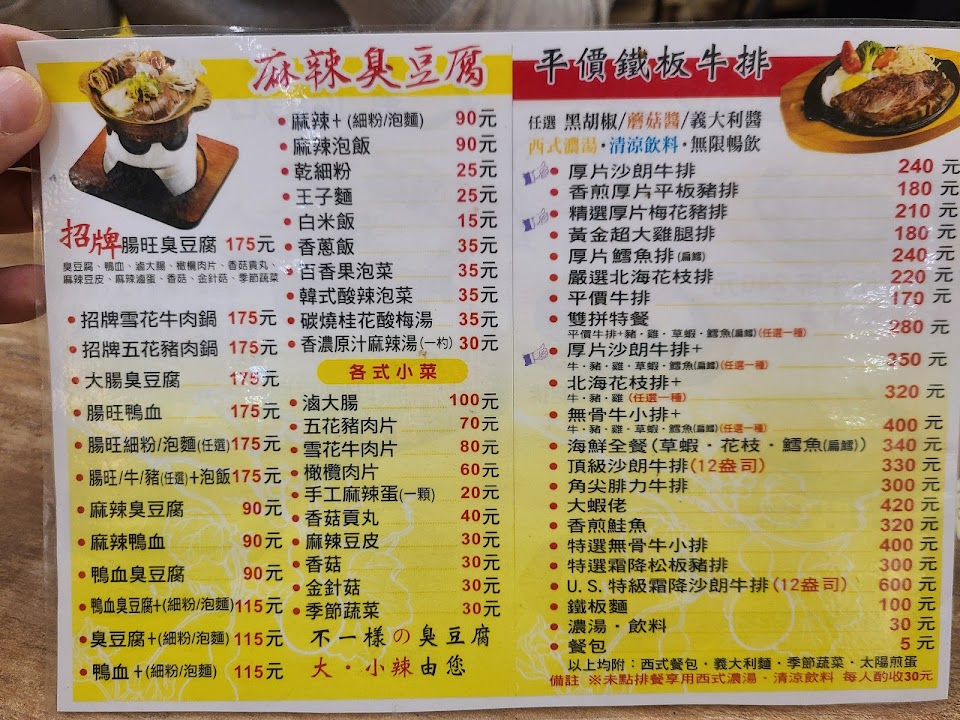 麻辣臭豆腐
招牌腸旺臭豆腐 175元
臭豆腐、鴨血、滷大腸、橄欖肉片、香菇貢丸、
麻辣豆皮、麻辣滷蛋、香菇、金針菇、季節蔬菜
•招牌雪花牛肉鍋 175元
•招牌五花豬肉鍋 175元
•大腸臭豆腐 175元
•腸旺鴨血 175元
•腸旺細粉/泡麵(任選)175元
•腸旺/牛/豬(任選)+泡飯175元
•麻辣臭豆腐 90元
•麻辣鴨血 90元
•鴨血臭豆腐 90元
•鴨血臭豆腐+(細粉/泡麵)115元
•臭豆腐+(細粉/泡麵)115元
•鴨血+(細粉/泡麵) 115元
•麻辣+(細粉/泡麵) 90元
•麻辣泡飯 90元
•乾細粉 25元
•王子麵 25元
•白米飯 15元
•香蔥飯 35元
•百香果泡菜 35元
•韓式酸辣泡菜 35元
•碳燒桂花酸梅湯 35元
•香濃原汁麻辣湯(一杓) 30元
各式小菜
•滷大腸 100元
•五花豬肉片 70元
•雪花牛肉片 80元
•橄欖肉片 60元
•手工麻辣蛋(一顆) 20元
•香菇貢丸 40元
•麻辣豆皮 30元
•香菇 30元
•金針菇 30元
•季節蔬菜 30元
不一樣の臭豆腐
大·小辣由您
平價鐵板牛排
任選 黑胡椒/蘑菇醬/義大利醬
西式濃湯·清涼飲料·無限暢飲
•厚片沙朗牛排 240元
•香煎厚片平板豬排 180元
•精選厚片梅花豬排 210元
•黃金超大雞腿排 180元
•厚片鱈魚排(扁鱈) 240元
•嚴選北海花枝排 220元
•平價牛排 170元
•雙拼特餐 280元
平價牛排+豬·雞·草蝦·鱈魚(扁鱈)(任選一種)
•厚片沙朗牛排+ 350元
牛·豬·雞·草蝦·鱈魚(扁鱈)(任選一種)
•北海花枝排+ 320元
牛·豬·雞 (任選一種)
•無骨牛小排+ 400元
牛·豬·雞·草蝦·鱈魚(扁鱈)(任選一種)
•海鮮全餐(草蝦·花枝·鱈魚(扁鱈)) 340元
•頂級沙朗牛排(12盎司) 330元
•角尖腓力牛排 300元
•大蝦佬 420元
•香煎鮭魚 320元
•特選無骨牛小排 400元
•特選霜降松板豬排 300元
•U.S.特級霜降沙朗牛排(12盎司) 600元
•鐵板麵 100元
•濃湯·飲料 30元
•餐包 5元
以上均附：西式餐包·義大利麵·季節蔬菜·太陽煎蛋
備註 ※未點排餐享用西式濃湯·清涼飲料 每人酌收30元